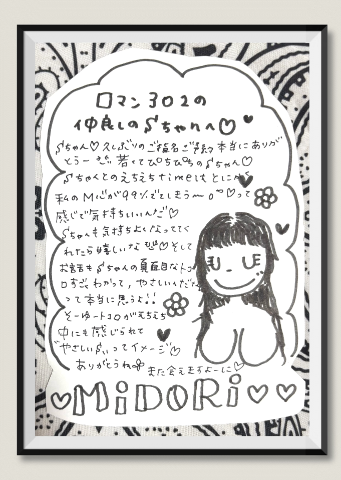 ロマン302の
仲良しのSちゃんへ♡
Sちゃん♡久しぶりのご指名ご予約本当にありが
とうー 若くてぴちぴちのSちゃん♡
Sちゃんとのえちえちtimeはとにかく
私のM心が99%でてしまう〜 って
感じで気持ちいいんだ♡
Sちゃんも気持ちよくなってくく
れたら嬉しいな♡そして
お話もSちゃんの真面目なトコ
ロすごくわかって、やさしいんだな
って本当に思うよ!!
そーゆートコロがえちえち
中にも感じられて
やさしいSってイメージ♡
ありがとうね また会えますよーに♡
♡MiDORi♡♡